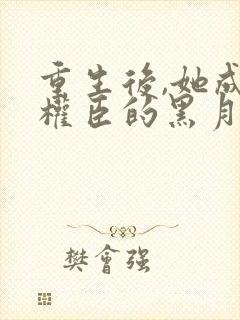 重生後,她成
權臣的黑月
樊會强